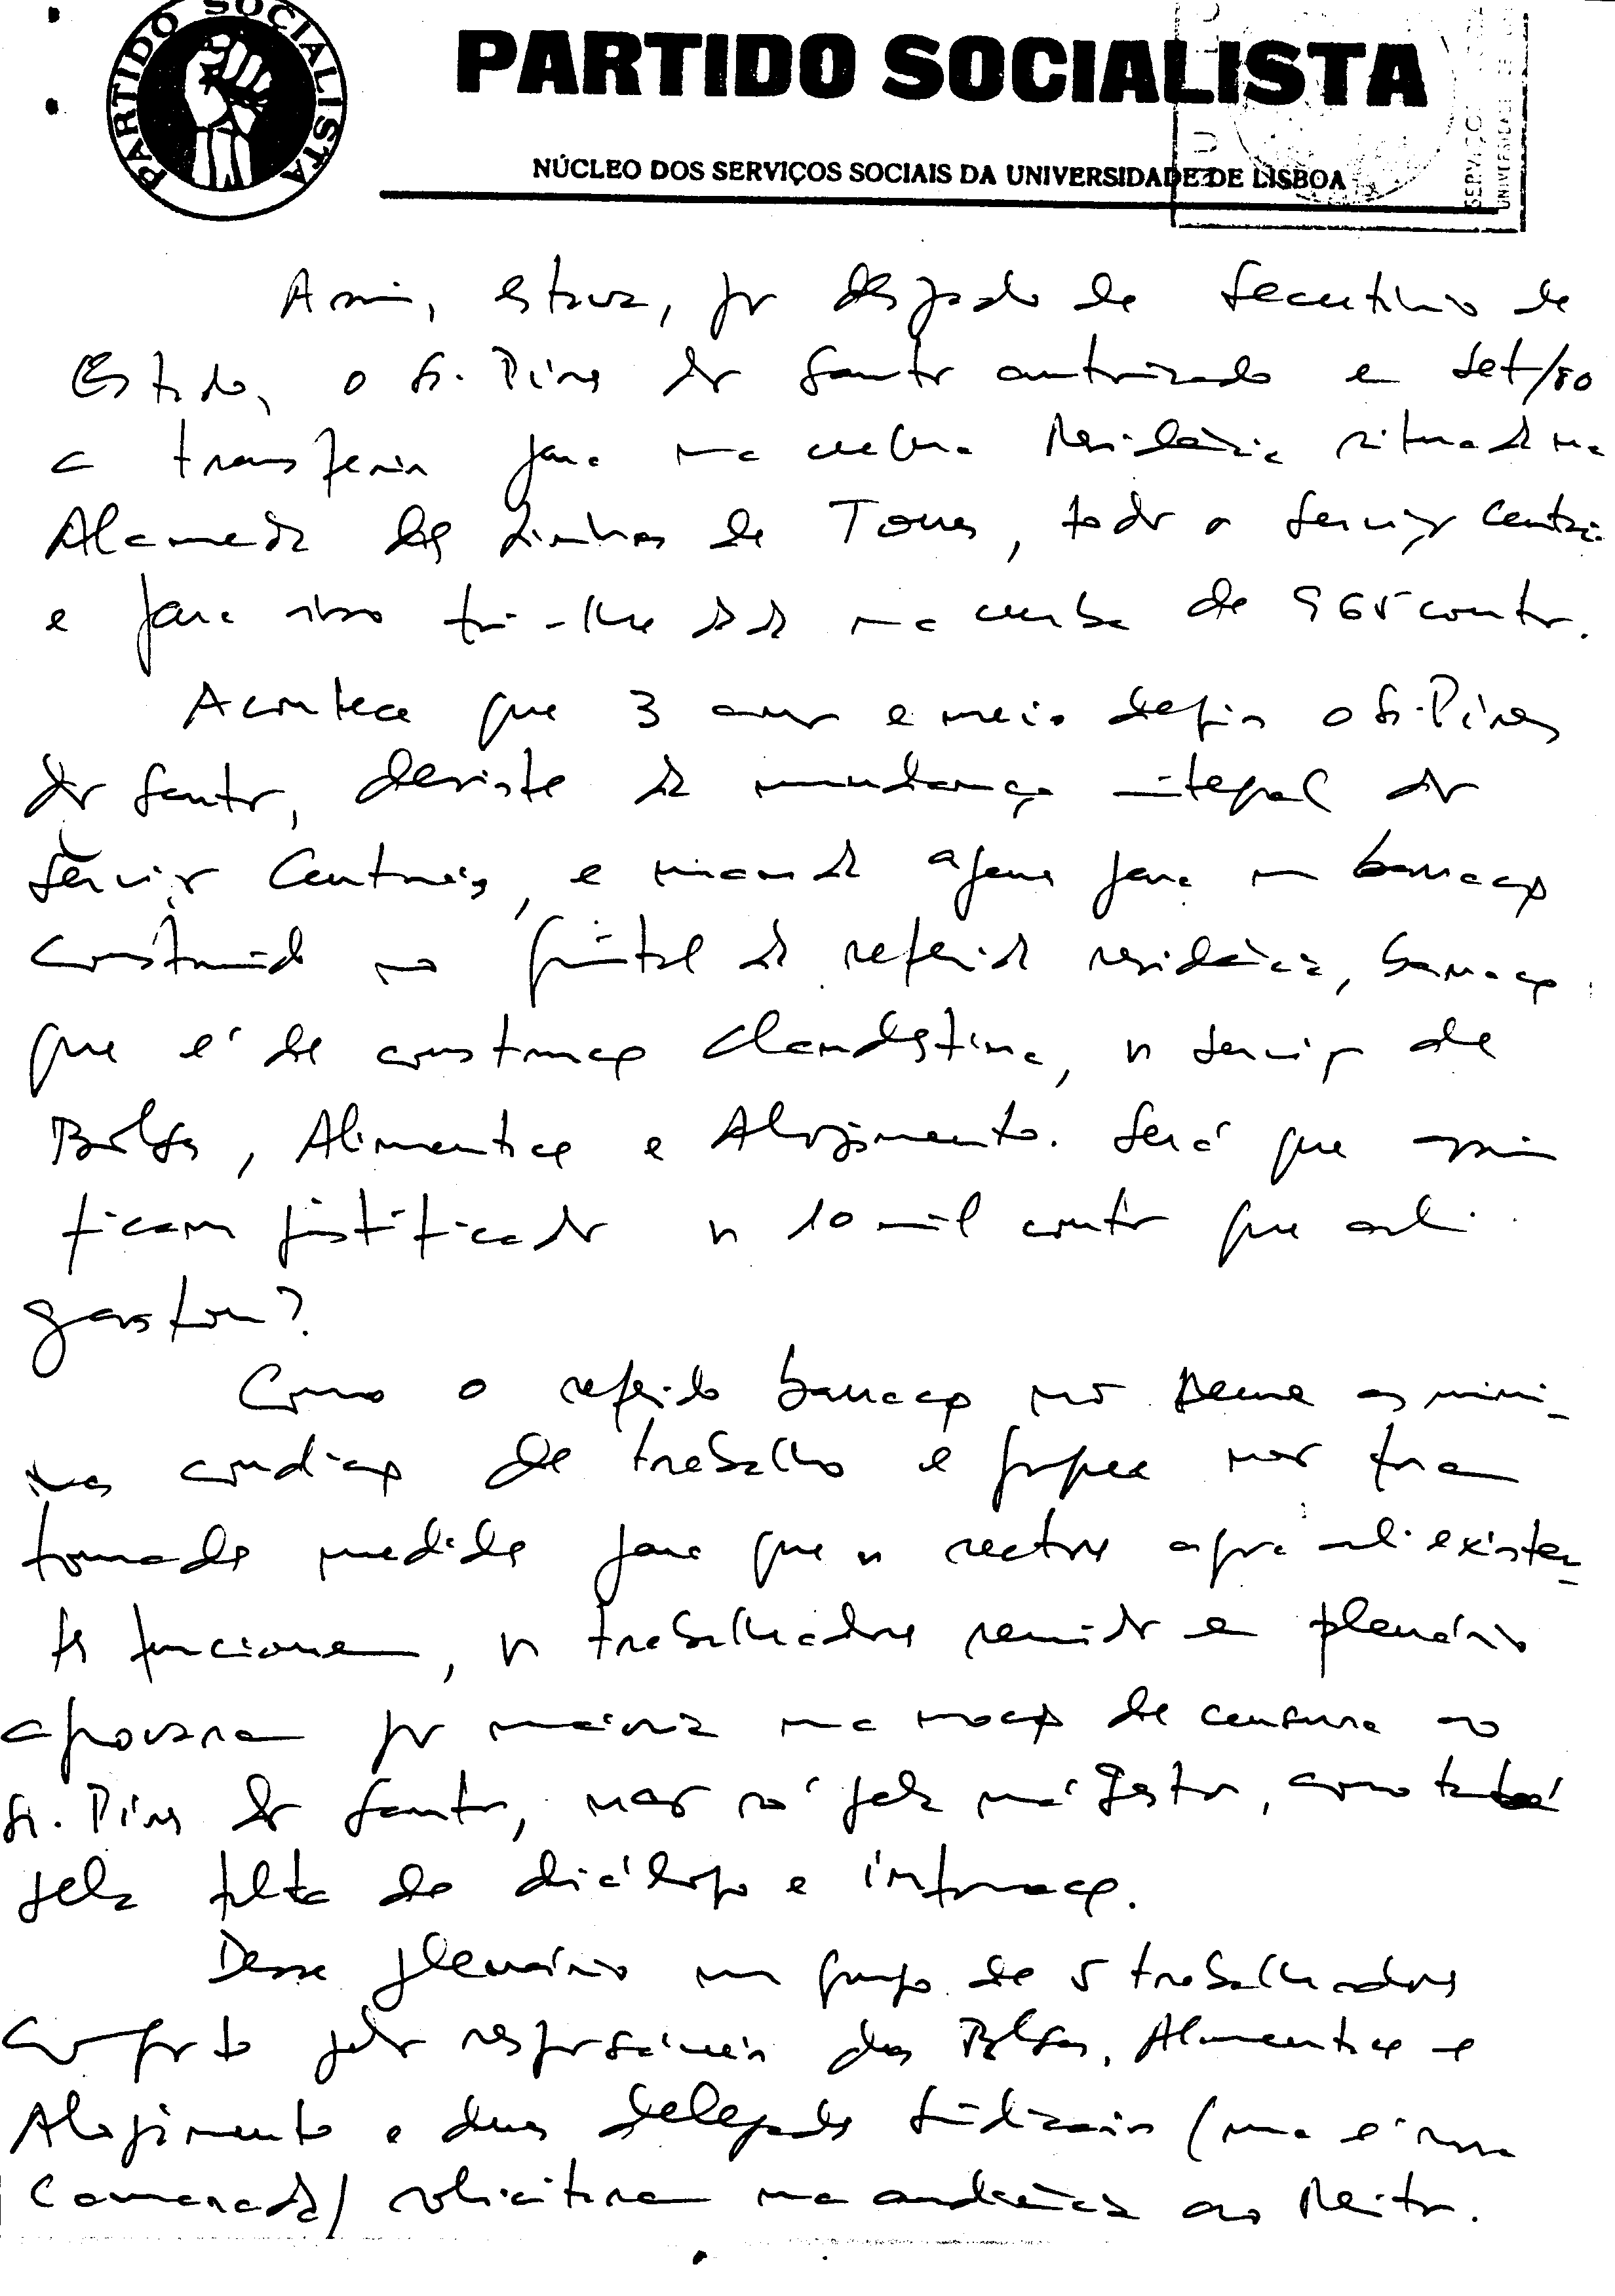 PARTIDO SOCIALISTA
PARTIDO SOCIALISTA
NÚCLEO DOS SERVIÇOS SOCIAIS DA UNIVERSIDADE DE LISBOA
SERVIÇO
UNIVERSIDADE DE
Assim, estava, por despacho de Secretário de
Estado, o Sr. Pires dos Santos autorizado em Set/80
a transferir para uma velha Residência situada na
Alameda das Linhas de Torres, todos os Serviços Centrais
e para isso foi-lhe dada uma verba de 965 contos.
Acontece que 3 anos e meio depois o Sr. Pires
dos Santos, desiste da mudança integral dos
Serviços Centrais, e manda apenas para um barracão
construído no quintal da referida residência, barracão
que é de construção clandestina, os serviços de
Bolsas, Alimentação e Alojamento. Será que assim
ficam justificados os 10 mil contos que ali
gastou?
Como o referido barracão não reune as míni-
mas condições de trabalho e porque não foram
tomadas medidas para que os sectores agora ali existen-
tes funcionem, os trabalhadores reunidos em plenário
aprovaram por maioria uma moção de censura ao
Sr. Pires dos Santos, não só pela má gestão, como também
pela falta de diálogo e informação.
Desse plenário um grupo de 5 trabalhadores
composto pelos responsáveis das Bolsas, Alimentação e
Alojamento e duas delegadas sindicais (uma é nossa
Camarada) solicitaram uma audiência ao Reitor.